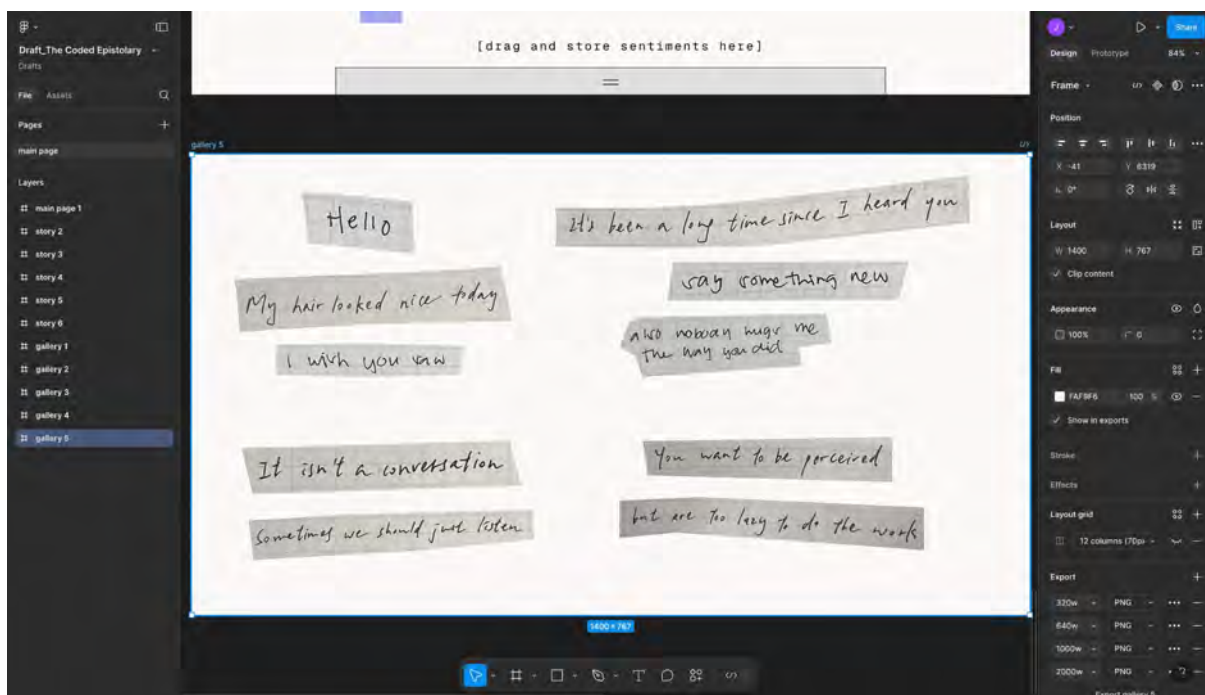 Draft_The Coded Epistolary
Drafts
File Assets
Pages
main page
Layers
main page 1
story 2
story 3
story 4
story 5
story 6
gallery 1
gallery 2
gallery 3
gallery 4
gallery 5
[drag and store sentiments here]
gallery 5
Hello
My hair looked nice today
I wish you saw
It's been a long time since I heard you
say something new
also nobody hugs me
the way you did
It isn't a conversation
Sometimes we should just listen
You want to be perceived
but are too lazy to do the work
1400 × 767
J
Share
Design Prototype 84%
Frame
Position
X -41 Y 6319
0°
Layout
W 1400 H 767
Clip content
Appearance
100% 0
Fill
FAF9F6 100 %
Show in exports
Stroke
Effects
Layout grid
12 columns (70px
Export
320w PNG
640w PNG
1000w PNG
2000w PNG
Export gallery 5